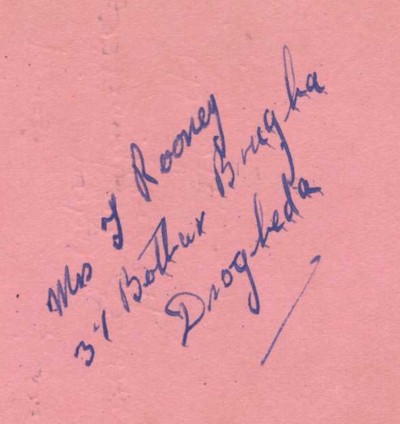 Mrs Rooney
Bothar Brugha
Drogheda